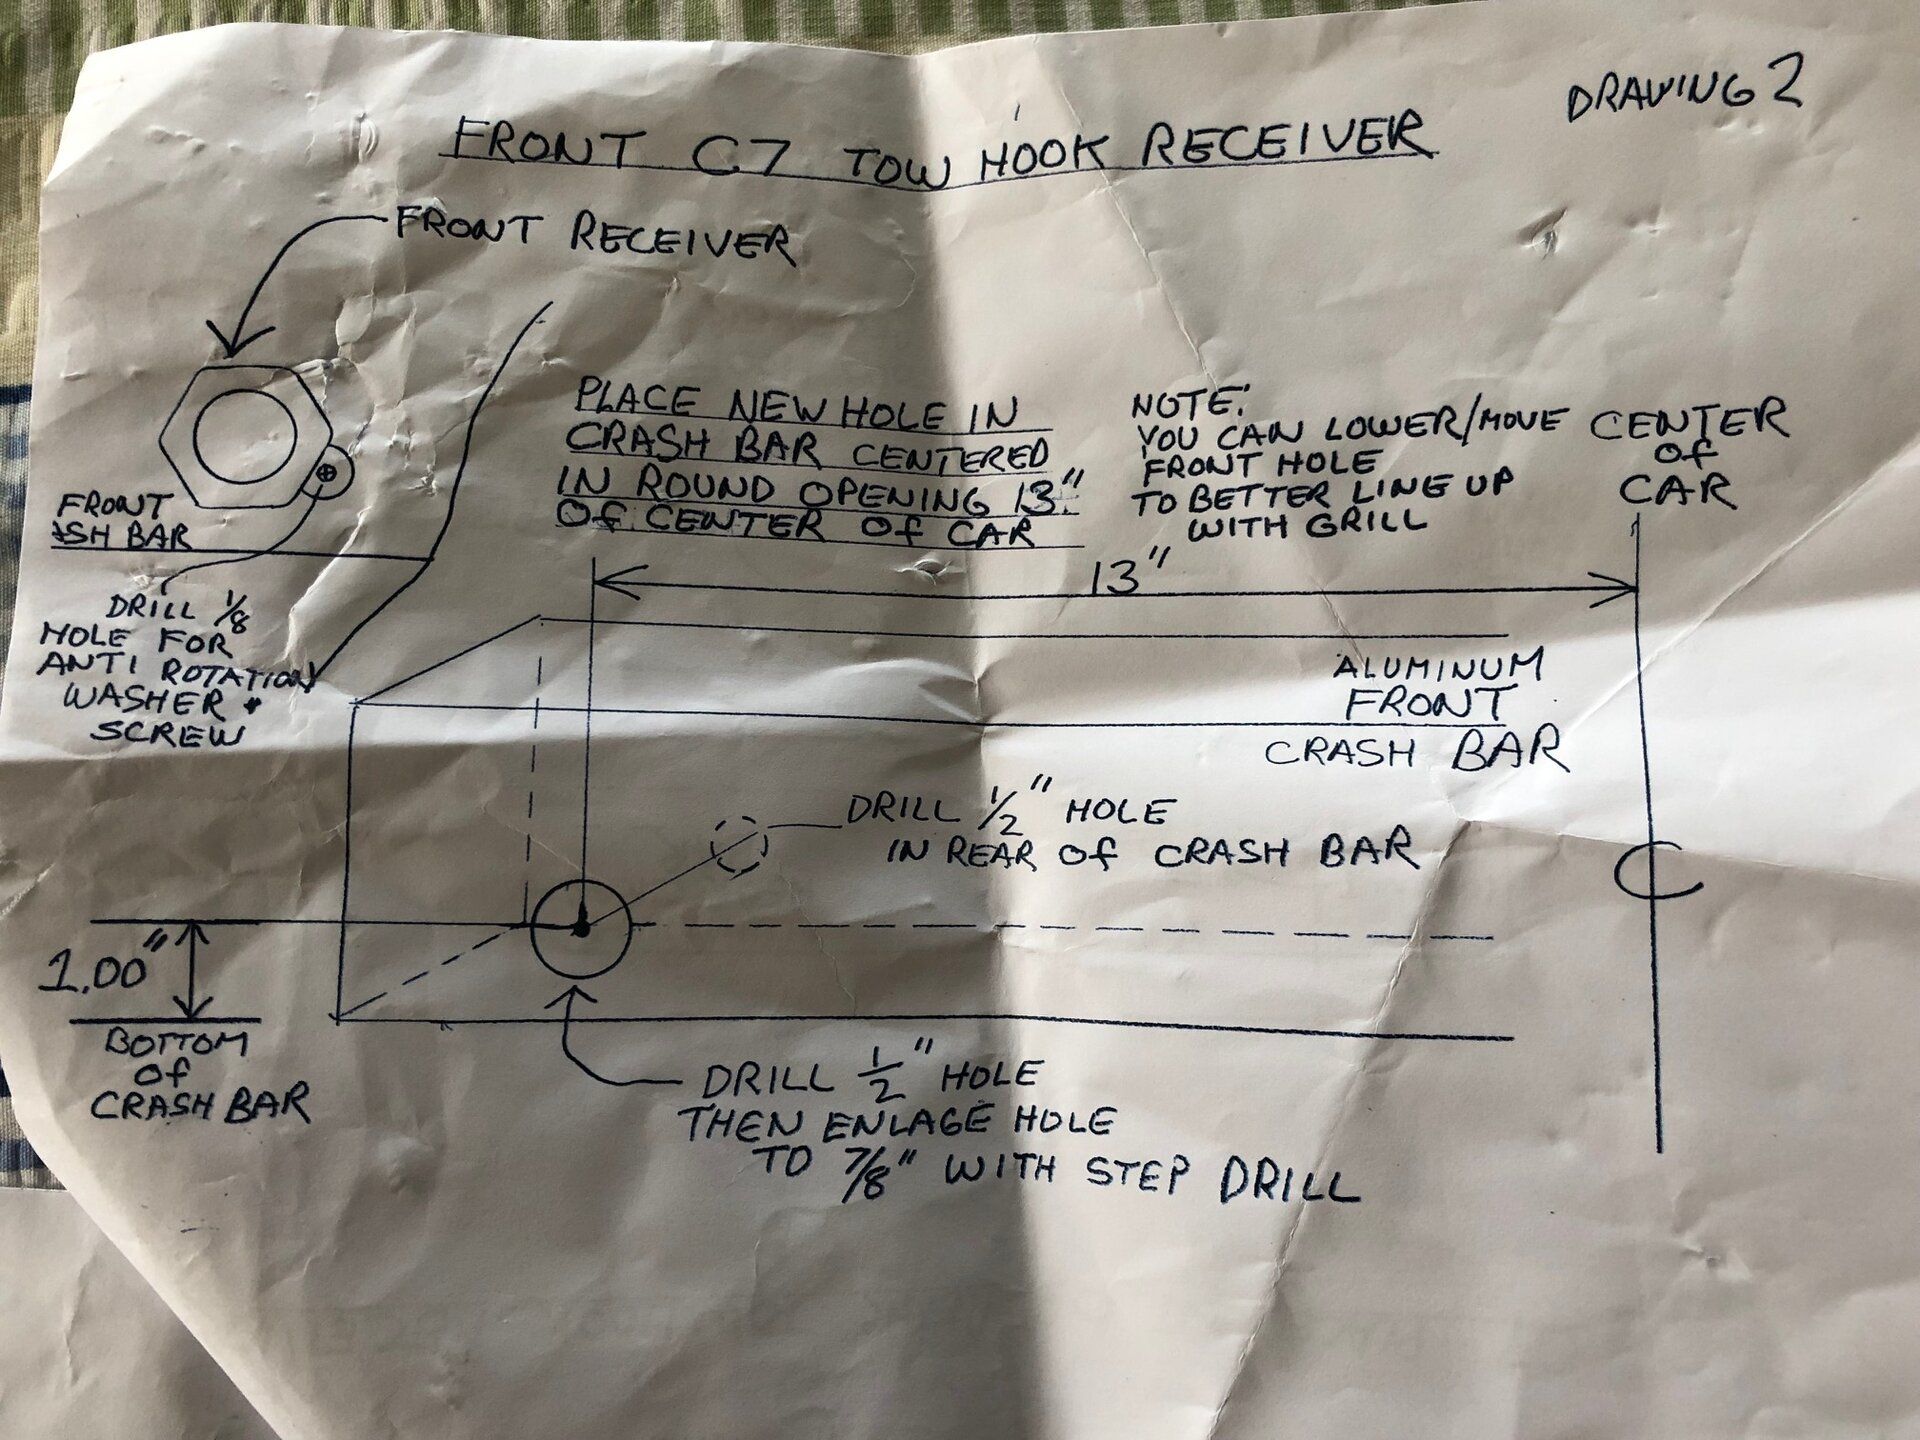 DRAWING 2
FRONT C7 TOW HOOK RECEIVER
FRONT RECEIVER
FRONT
ASH BAR
DRILL 1/8
HOLE FOR
ANTI ROTATION
WASHER +
SCREW
PLACE NEW HOLE IN
CRASH BAR CENTERED
IN ROUND OPENING 13"
OF CENTER OF CAR
NOTE:
YOU CAN LOWER/MOVE
FRONT HOLE
TO BETTER LINE UP
WITH GRILL
CENTER
OF
CAR
13"
ALUMINUM
FRONT
CRASH BAR
DRILL 1/2" HOLE
IN REAR OF CRASH BAR
C
1.00"
BOTTOM
OF
CRASH BAR
DRILL 1/2" HOLE
THEN ENLAGE HOLE
TO 7/8" WITH STEP DRILL